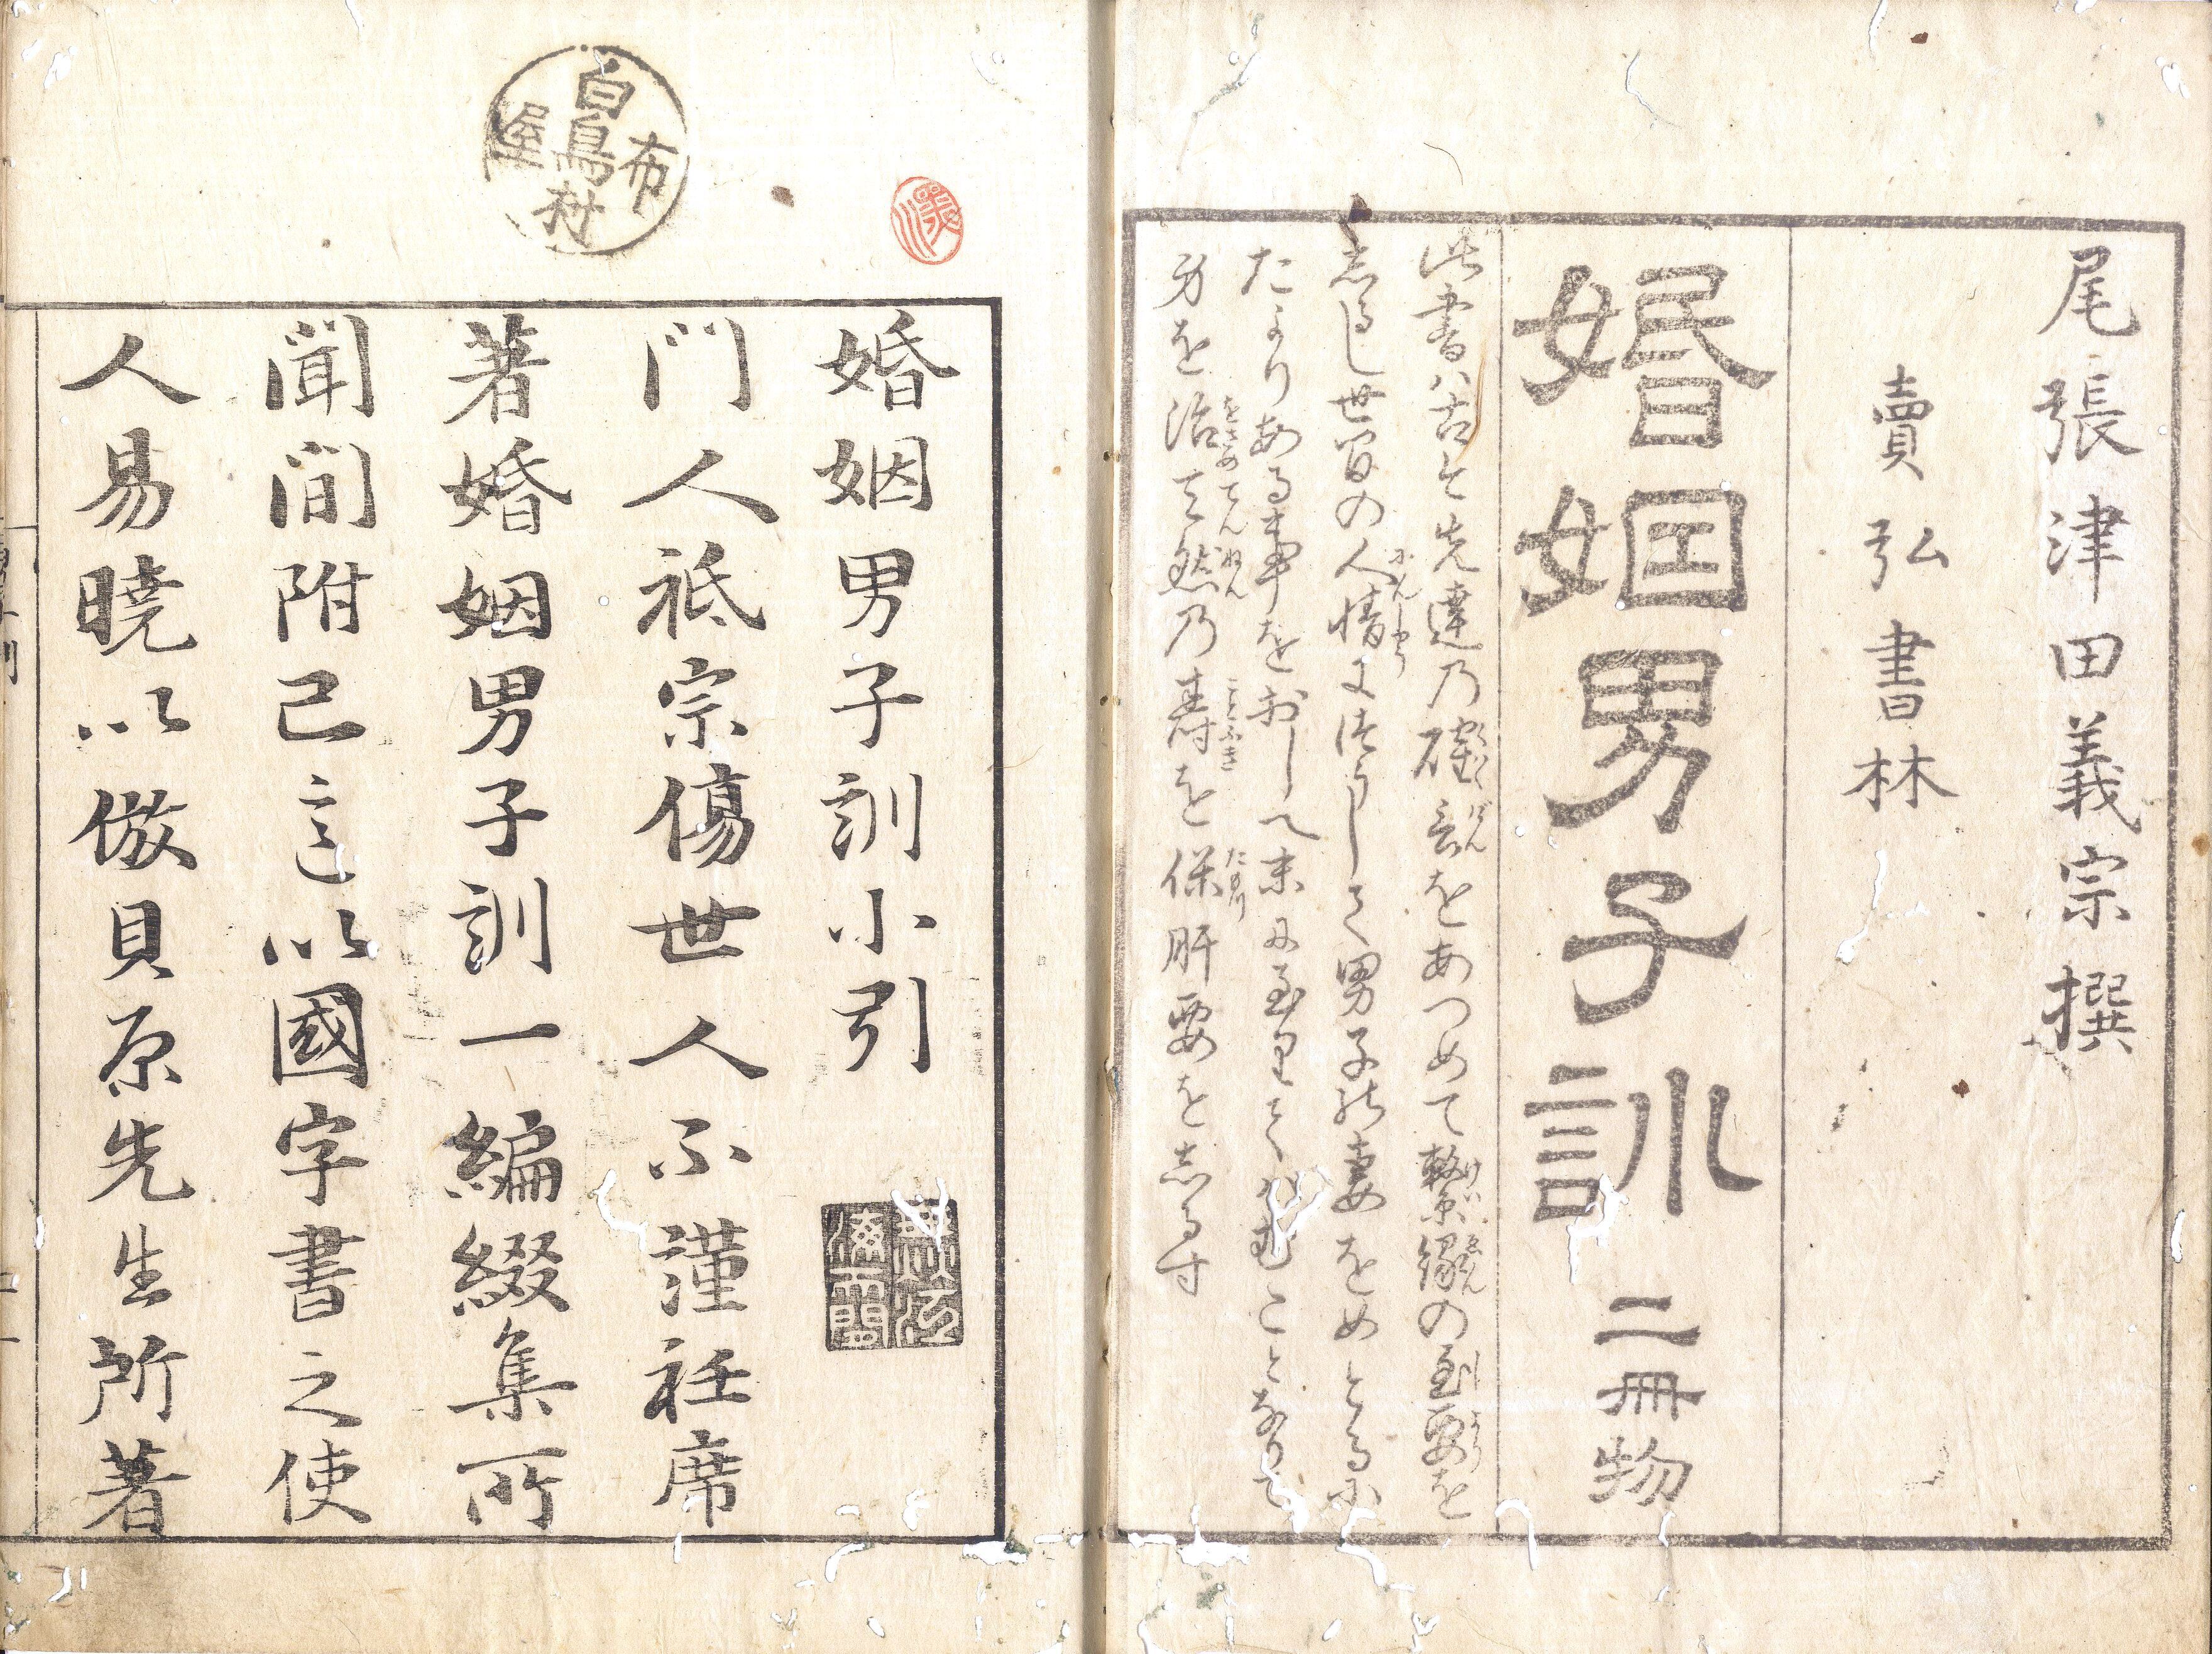 尾張津田義宗撰
賣弘書林
婚姻男子訓 二冊物
此書ハ古今先達乃確言をあつめて繋縁の到要を
志るし世間の人情によつて男子能妻をめとるに
たよりある事をおしへ末に至りて
身を治て天然乃寿を保肝要を志る寸
白鳥村
布屋
婚姻男子訓小引
門人祗宗傷世人不謹衽席
著婚姻男子訓一編綴集所
聞間附己意以國字書之使
人易曉以倣貝原先生所著